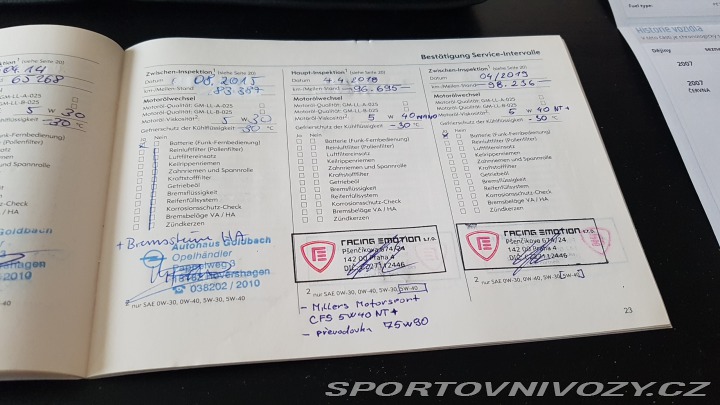 Bestätigung Service-Intervalle
04.14
65268
GM-LL-A-025
GM-LL-B-025
5 W 30
-30 °C
(Funk-Fernbedienung)
(Pollenfilter)
Goldbach
2010
W-40
Zwischen-Inspektion¹ (siehe Seite 20)
Datum 09.2015
km-/Meilen-Stand: 83.867
Motorölwechsel
Motoröl-Qualität: GM-LL-A-025
GM-LL-B-025
Motoröl-Viskosität²: 5 W 30
Gefrierschutz der Kühlflüssigkeit -30 °C
Ja Nein
Batterie (Funk-Fernbedienung)
Reinluftfilter (Pollenfilter)
Luftfiltereinsatz
Keilrippenriemen
Zahnriemen und Spannrolle
Kraftstofffilter
Getriebeöl
Bremsflüssigkeit
Reifenfüllsystem
Korrosionsschutz-Check
Bremsbeläge VA / HA
Zündkerzen
+ Bremssteine HA
Autohaus Goldbach
Opelhändler
038202 / 2010
2 nur SAE 0W-30, 0W-40, 5W-30, 5W-40
Haupt-Inspektion¹ (siehe Seite 20)
Datum 4.4.2018
km-/Meilen-Stand: 96.695
Motorölwechsel
Motoröl-Qualität: GM-LL-A-025
GM-LL-B-025
Motoröl-Viskosität²: 5 W 40
Gefrierschutz der Kühlflüssigkeit -30 °C
Ja Nein
Batterie (Funk-Fernbedienung)
Reinluftfilter (Pollenfilter)
Luftfiltereinsatz
Keilrippenriemen
Zahnriemen und Spannrolle
Kraftstofffilter
Getriebeöl
Bremsflüssigkeit
Reifenfüllsystem
Korrosionsschutz-Check
Bremsbeläge VA / HA
Zündkerzen
RACING EMOTION s.r.o.
Pšenčíkova 674/24
142 00 Praha 4
2 nur SAE 0W-30, 0W-40, 5W-30, 5W-40
- Millers Motorsport
CFS 5W40 NT+
- převodovka 75W90
Zwischen-Inspektion¹ (siehe Seite 20)
Datum 04/2019
km-/Meilen-Stand: 98.236
Motorölwechsel
Motoröl-Qualität: GM-LL-A-025
GM-LL-B-025
Motoröl-Viskosität²: 5 W 40 NT+
Gefrierschutz der Kühlflüssigkeit -30 °C
Ja Nein
Batterie (Funk-Fernbedienung)
Reinluftfilter (Pollenfilter)
Luftfiltereinsatz
Keilrippenriemen
Zahnriemen und Spannrolle
Kraftstofffilter
Getriebeöl
Bremsflüssigkeit
Reifenfüllsystem
Korrosionsschutz-Check
Bremsbeläge VA / HA
Zündkerzen
RACING EMOTION s.r.o.
Pšenčíkova 674/24
142 00 Praha 4
2 nur SAE 0W-30, 0W-40, 5W-30, 5W-40
23
Fuel type:
Historie vozidla
Dějiny
2007
2007
SPORTOVNIVOZY.CZ